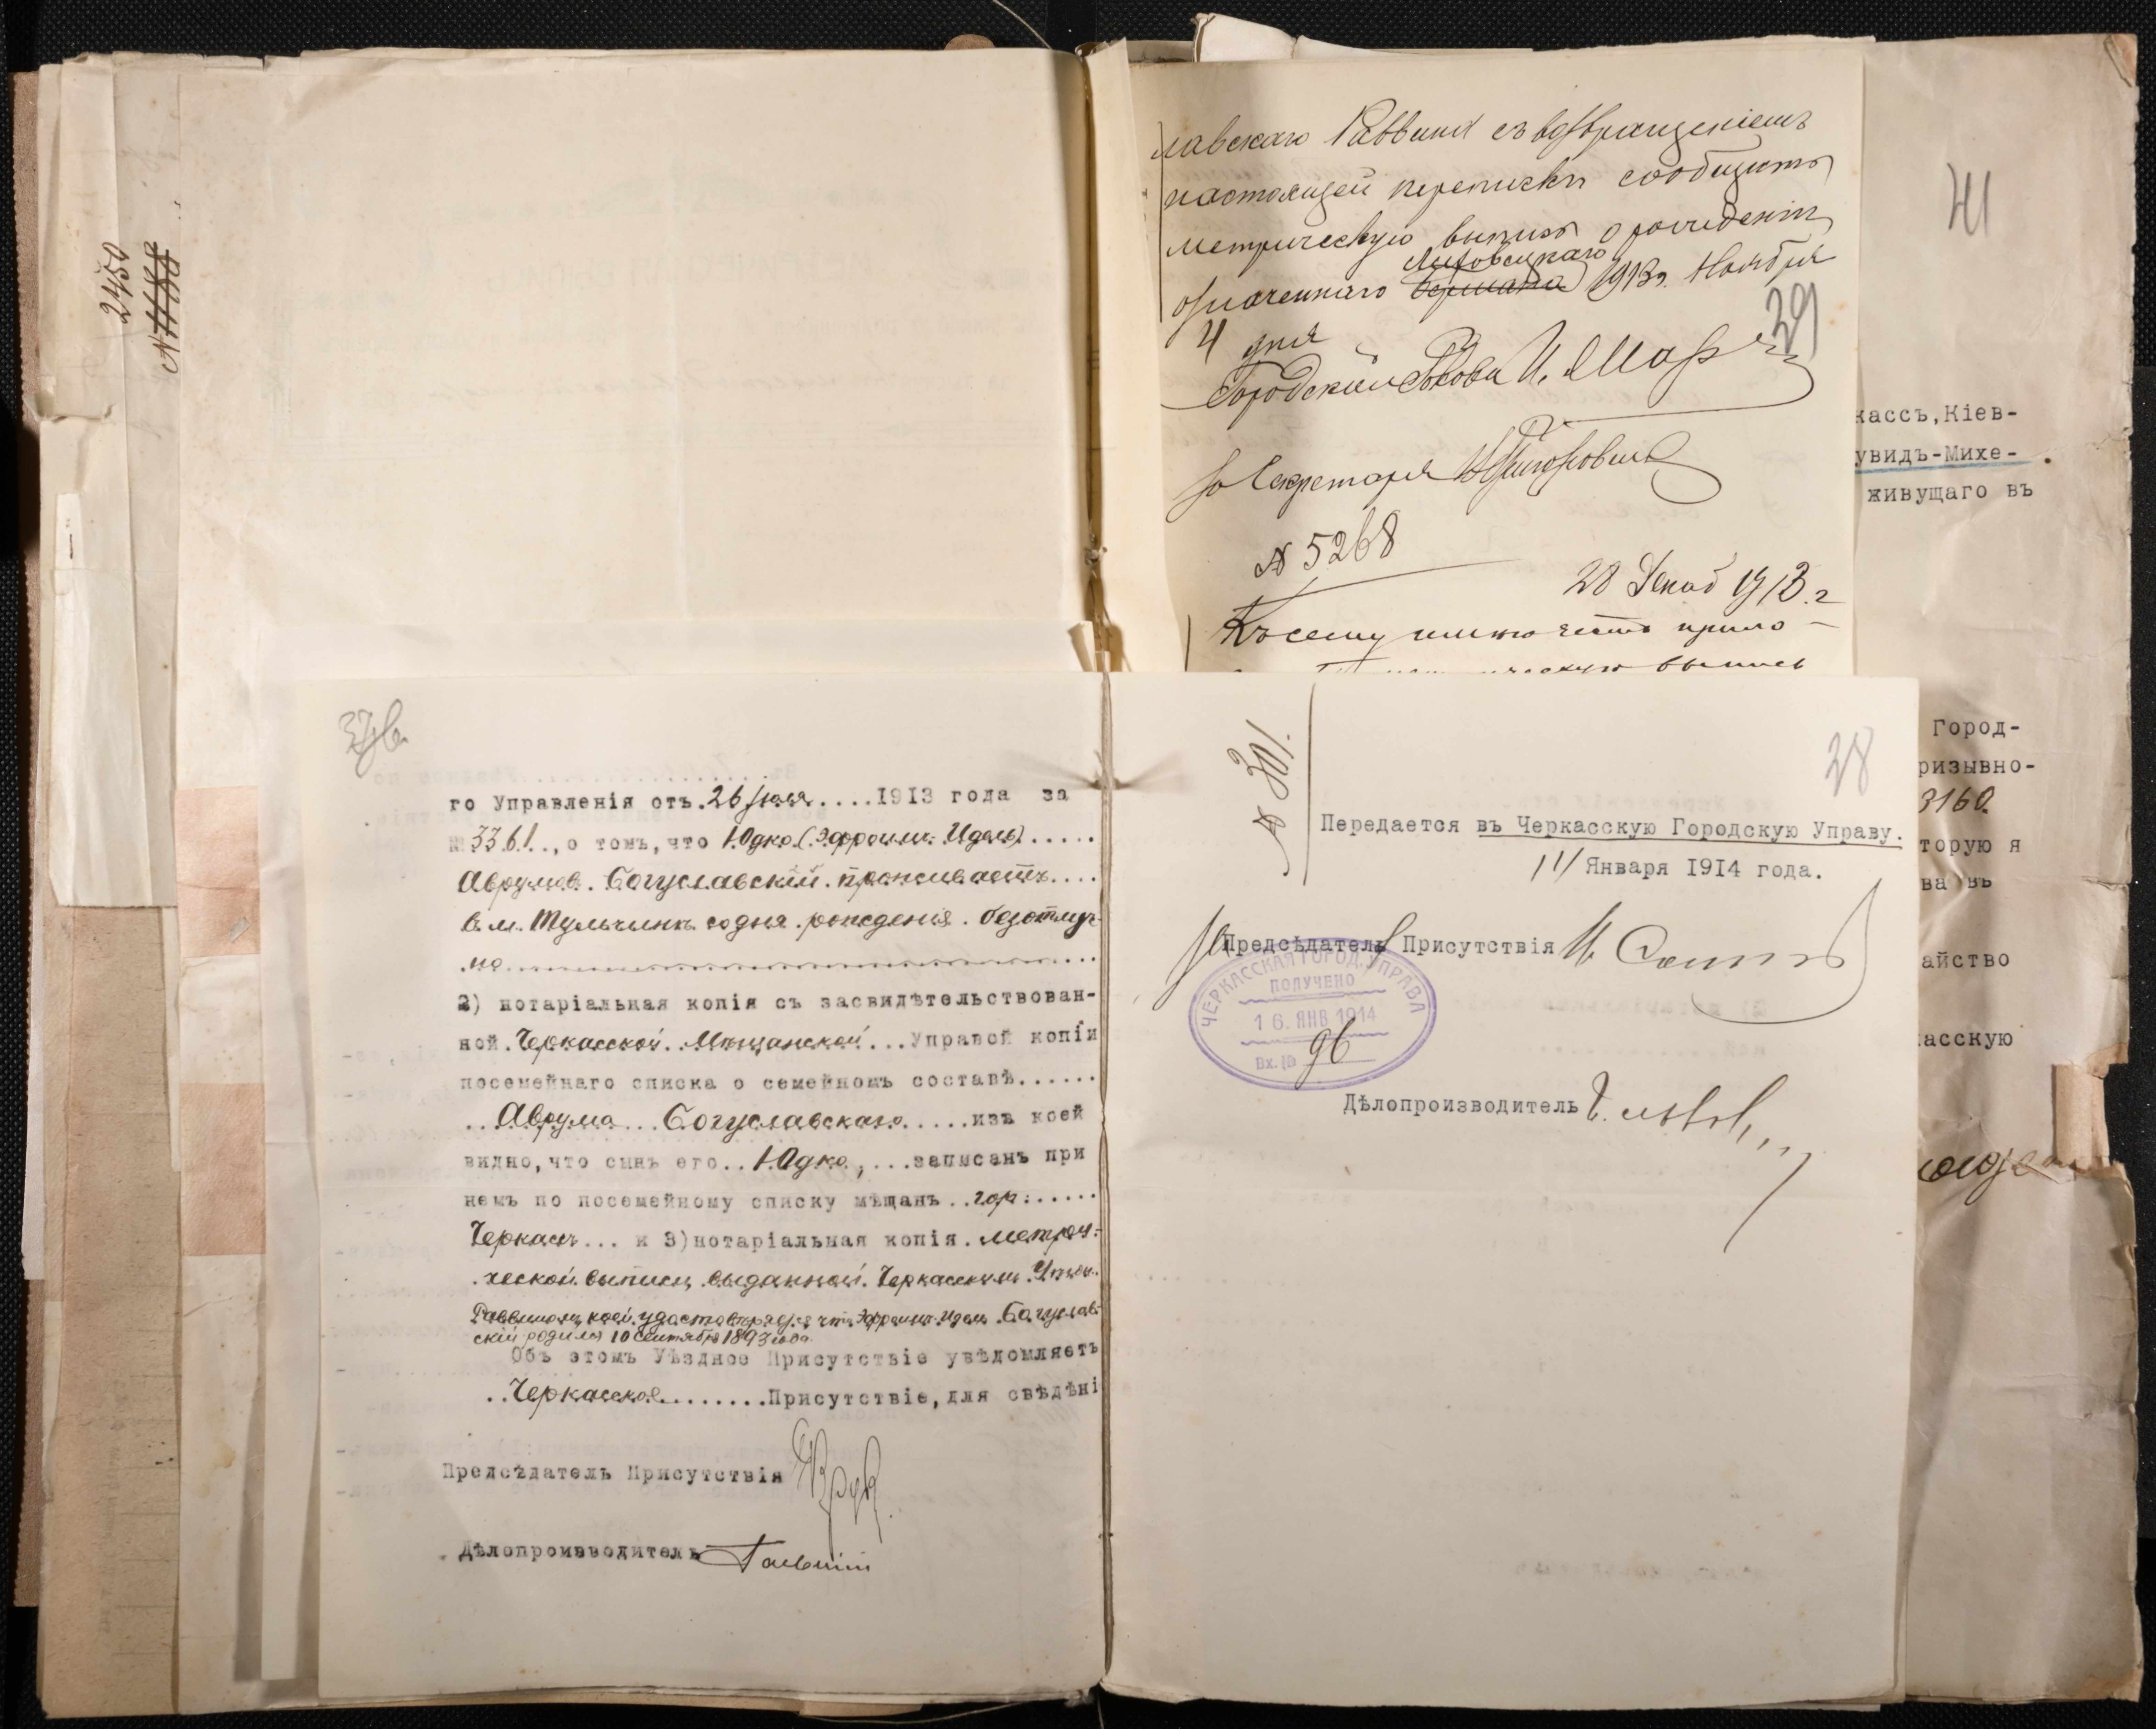 2450
37об.
го Управленія отъ.26 Іюля....1913 года за
№ 3361..,о томъ,что Юдко(Эфроимъ-Идель).....
Аврумов. Богуславскій.проживаетъ....
в м. Тульчинѣ со дня рожденія. безотлуч-
но
2) нотаріальная копія съ засвидѣтельствован-
ной.Черкасской..Мѣщанской...Управой копіи
посемейнаго списка о семейномъ составѣ......
..Аврума...Богуславскаго.....изъ коей
видно,что сынъ его..Юдко,...записанъ при
немъ по посемейному списку мѣщанъ..гор:.....
Черкасъ... и 3)нотаріальная копія.метри-
.ческой.выписи.выданной.Черкасскимъ
Раввиномъ, коей удостовѣряется что Эфроимъ-Идель Богуслав-
скій родился 10 Сентября 1893 года
Объ этомъ Уѣздное Присутствіе увѣдомляетъ
..Черкасское........Присутствіе,для свѣдѣні
Предсѣдатель Присутствія
Дѣлопроизводитель
лавскаго Раввина съ возвращеніемъ
настоящей переписки сообщить
метрическую выпись о рожденіи
Лиховецкаго
означеннаго Бермана 1913г. Ноября
4 дня
39
Городской Голова И.
за Секретаря
№ 5268
28 Декаб 1913.г
Къ сему имѣю честь прило-
выпись
41
кассъ,Кіев-
увидъ-Михе-.
живущаго въ
Город-
ризывно-
3160.
торую я
ва въ
айство
касскую
№ 301.
38
Передается въ Черкасскую Городскую Управу.
11 Января 1914 года.
за Предсѣдателя Присутствія
ЧЕРКАССКАЯ ГОРОД. УПРАВА
ПОЛУЧЕНО
16. ЯНВ 1914
Вх.№ 96
Дѣлопроизводитель